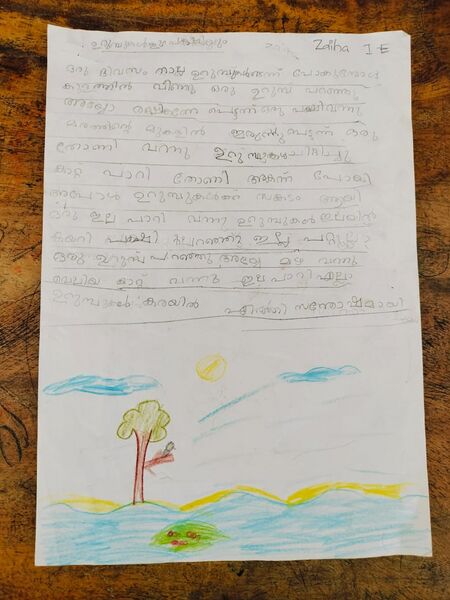 ഉറുമ്പുകളും പക്ഷിയും
Zaiha I E
ഒരു ദിവസം നാല് ഉറുമ്പുകൾ പോകുമ്പോൾ
കുളത്തിൽ വീണു ഒരു ഉറുമ്പ് പറഞ്ഞു
അയ്യോ രക്ഷിക്കണേ പെട്ടന്ന് ഒരു പക്ഷി വന്നു
മരത്തിന്റെ മുകളിൽ ഇരുന്നു പെട്ടന്ന് ഒരു
തോണി വന്നു ഉറുമ്പുകൾ
കാറ്റ് പാറി തോണി അകന്ന് പോയി
അപ്പോൾ ഉറുമ്പുകൾക്ക് സങ്കടം ആയി
ഒരു ഇല പാറി വന്നു ഉറുമ്പുകൾ ഇലയിൽ
കയറി പക്ഷി പറഞ്ഞു
ഒരു ഉറുമ്പ് പറഞ്ഞു അയ്യോ മഴ വന്നു
വലിയ കാറ്റ് വന്നു ഇല പാറി എല്ലാ
ഉറുമ്പുകൾ കരയിൽ എത്തി സന്തോഷമായി